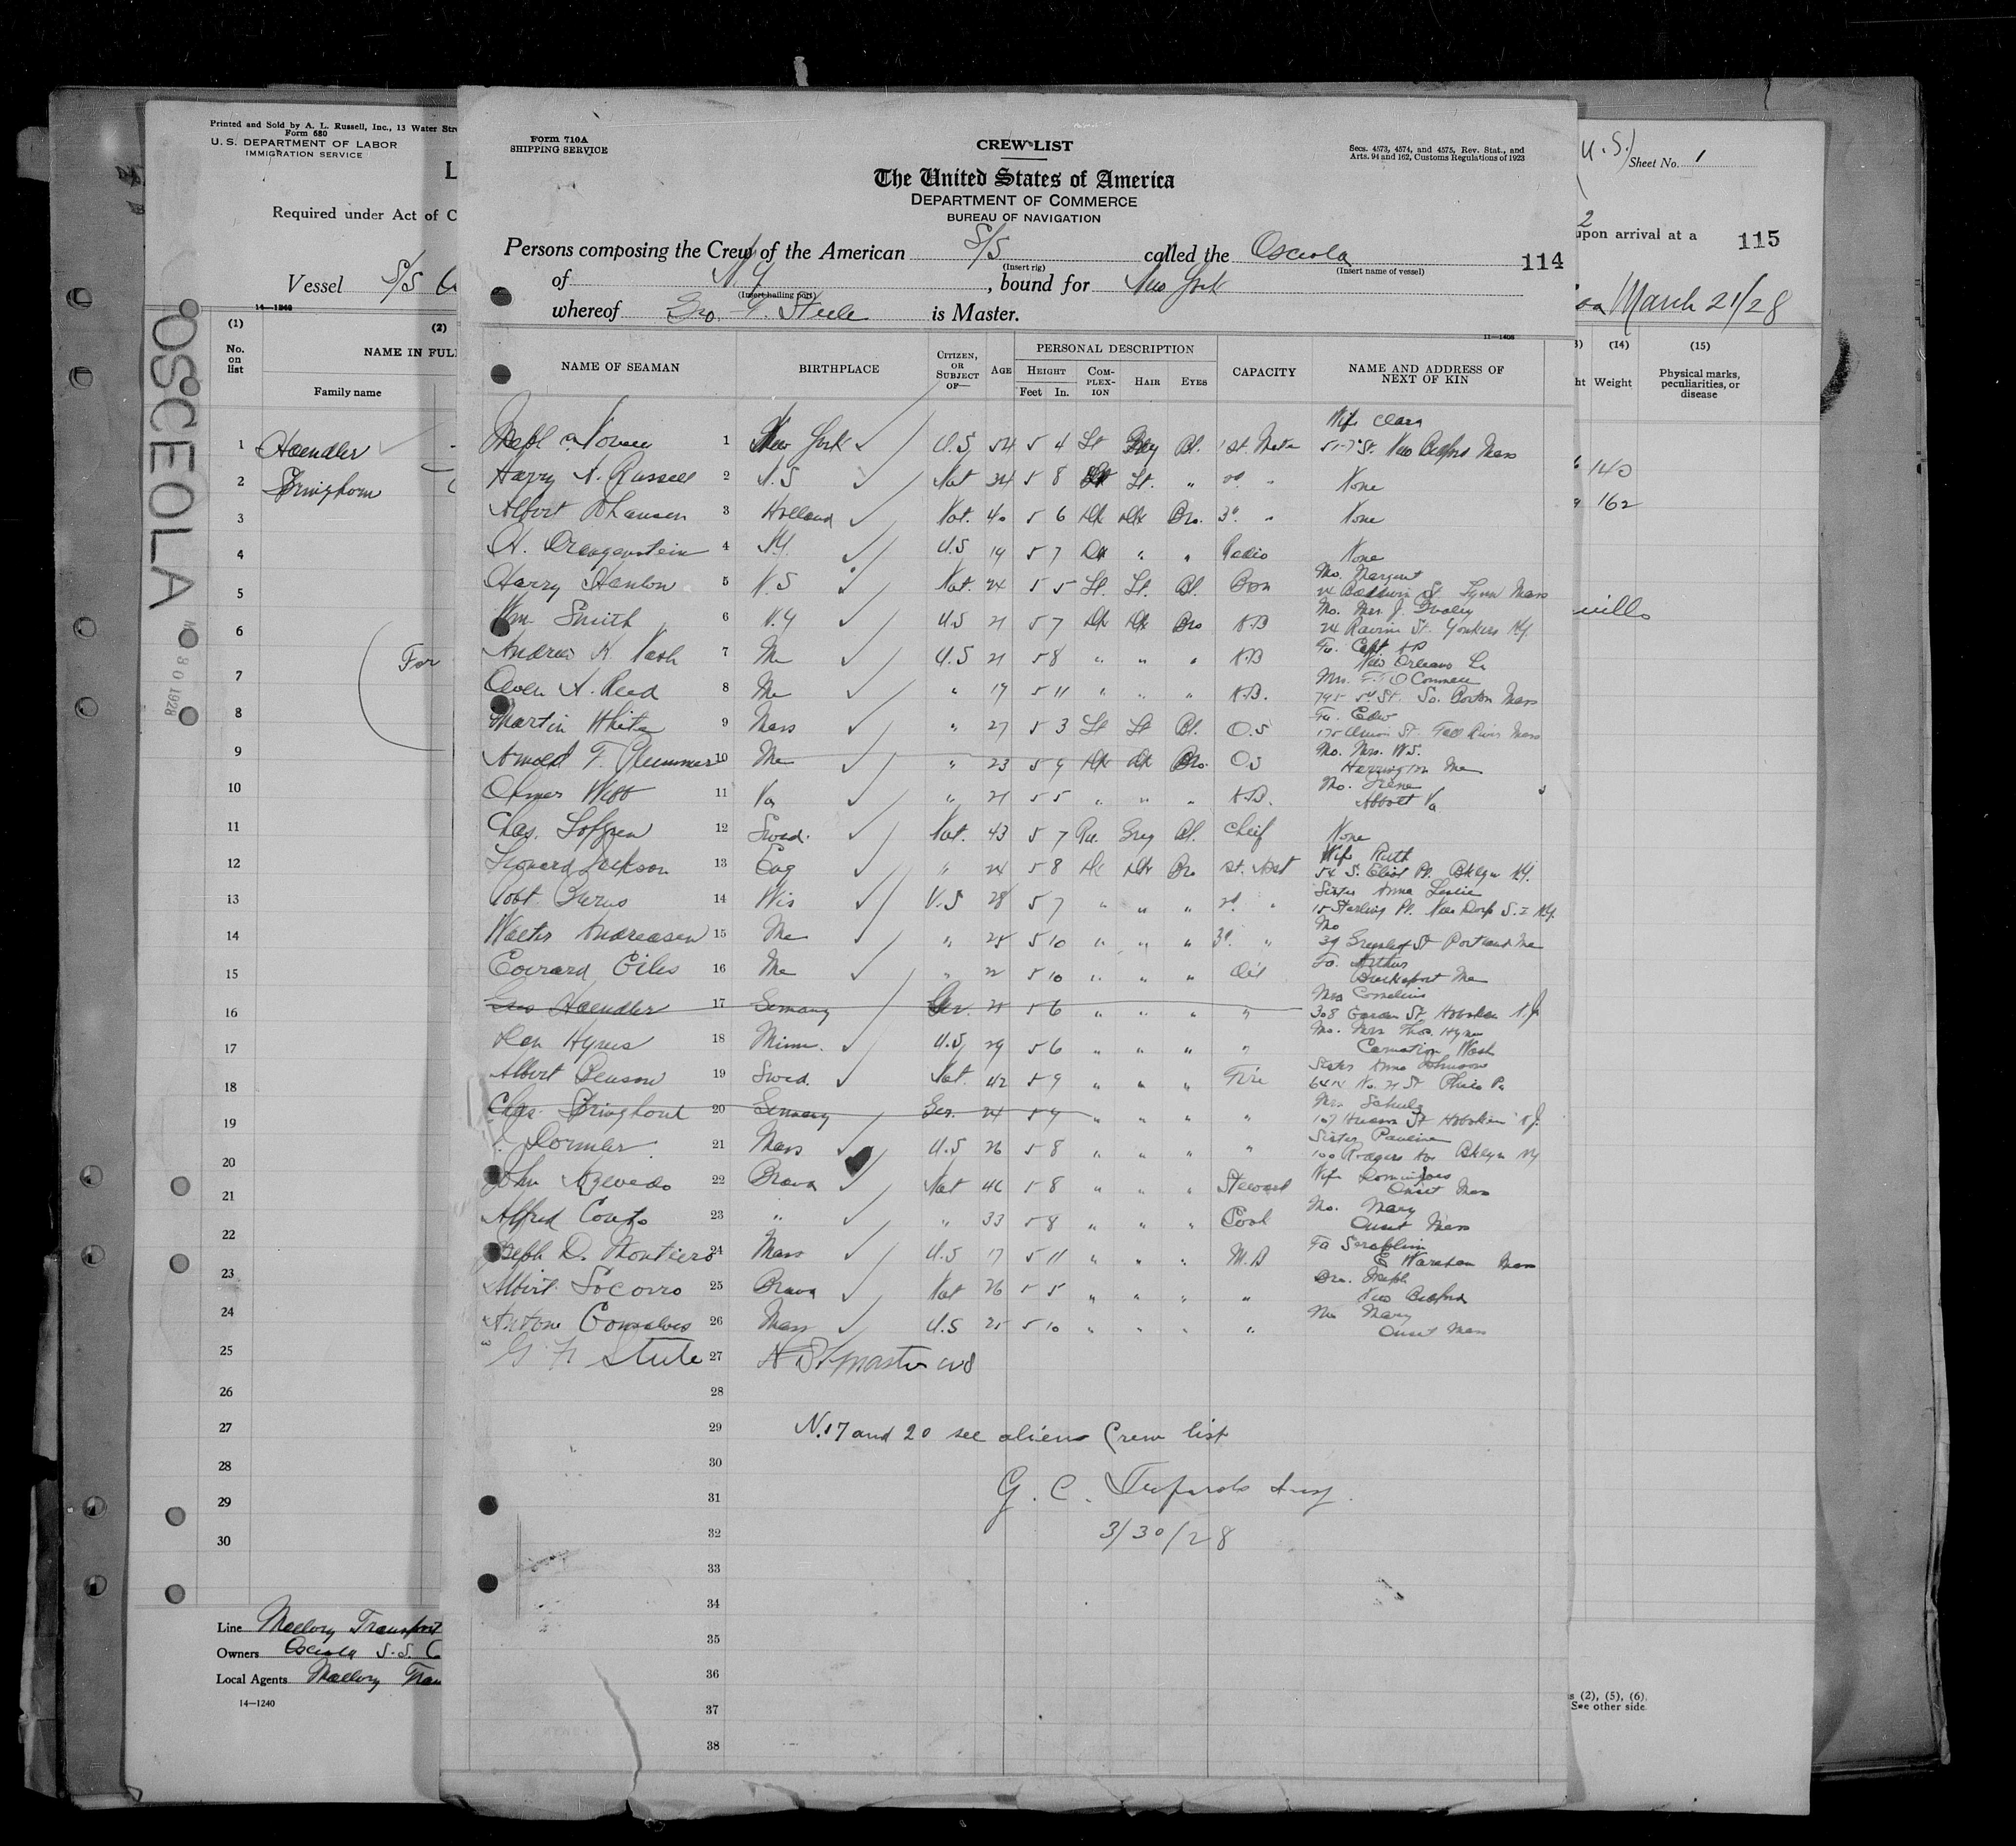 Printed and Sold by A. L. Russell, Inc., 13 Water
Form 680
U. S. DEPARTMENT OF LABOR
IMMIGRATION SERVICE
Required under Act of
Vessel S/S
14—1240
(1) (2)
No. on list
NAME IN FULL
Family name
1 Haendler
2
3
4
5
6
7
8
9
10
11
12
13
14
15
16
17
18
19
20
21
22
23
24
25
26
27
28
29
30
For
OSCEOLA
30 1928
Line Mallory Transport
Owners Osceola S.S. C
Local Agents Mallory Tran
14—1240
Form 710A
SHIPPING SERVICE
CREW LIST
Secs. 4573, 4574, and 4575, Rev. Stat., and
Arts. 94 and 162, Customs Regulations of 1923
The United States of America
DEPARTMENT OF COMMERCE
BUREAU OF NAVIGATION
Persons composing the Crew of the American S/S called the Osceola 114
(Insert rig) (Insert name of vessel)
of N Y, bound for New York
(Insert hailing port)
whereof Geo. F. Steele is Master.
11—1408
NAME OF SEAMAN BIRTHPLACE CITIZEN, OR SUBJECT OF— AGE PERSONAL DESCRIPTION CAPACITY NAME AND ADDRESS OF NEXT OF KIN
HEIGHT COMPLEXION HAIR EYES
Feet In.
Wife Clara
1 New York U.S 54 5 4 Lt Grey Bl. 1st. Mate New Bedford Mass
Harry A. Russell 2 N.S Nat 34 5 8 Lt. " 2d. " None
Albert Johansen 3 Holland Nat. 40 5 6 Dk Dk Bro. 3d. " None
4 N.Y. U.S 19 5 7 Dk " " Radio None
Mo. Margaret
Harry Hanlon 5 N.S Nat. 24 5 5 Lt. Lt. Bl. Bosn 24 Baldwin St. Lynn Mass
Wm. Smith 6 N.Y U.S 21 5 7 Dk Dk Bro A.B 24 Ravine St. Yonkers N.Y.
Andrew K. Nash 7 Me U.S 21 5 8 " " " A.B New Orleans La
Owen A. Reed 8 Me " 19 5 11 " " " A.B. 795 5d St. So. Boston Mass
Fa. Edw
Martin White 9 Mass " 27 5 3 Lt Lt Bl. O.S Fall River Mass
Mo. Mrs. W.S.
Arnold F. Plummer 10 Me " 23 5 9 Dk dk Bro. O.S Harrington Me
Mo. Irene
Webb 11 Va " 21 5 5 " " " A.B. Abbott Va
Chas. Lofgren 12 Swed. Nat. 43 5 7 Ru. Grey Bl. Cheif None
Wife Ruth
Leonard Jackson 13 Eng " 24 5 8 Dk Dk Bro 1st. Asst 54 S. Eliot Pl. Bklyn N.Y.
Sister Anna Leslie
Robt Burns 14 Wis U.S 28 5 7 " " " 2d. " 15 Sterling Pl. New Dorp S.I N.Y.
Mo
Walter Andreasen 15 Me " 25 5 10 " " " 3d. " Portland Me
Fa. Arthur
Edward Giles 16 Me " 22 5 10 " " " Oil Bucksport Me
Mrs Cornelius
Haendler 17 Germany Ger. 21 5 6 " " " " 308 Garden St Hoboken N.J.
Mo. Mrs Thos. Hynes
Dan Hynes 18 Minn. U.S. 29 5 6 " " " " Carnation Wash
Sister Anna Johnson
Albert Benson 19 Swed. Nat. 42 5 9 " " " Fire Phila Pa
Mr. Schulz
Chas. 20 Germany Ger. 24 5 9 " " " " 107 Hudson St Hoboken N.J.
Sister Pauline
Dormler 21 Mass U.S 26 5 8 " " " " 100 Rodgers Ave Bklyn NY
John Azevedo 22 Brava Nat 46 5 8 " " " Steward Onset Mass
Mo. Mary
Alfred Couto 23 " " 33 5 8 " " " Cook Onset Mass
Fa Seraphim
Joseph D. Montiero 24 Mass U.S 17 5 11 " " " M.B E Wareham Mass
Bro. Joseph
Albert Socorro 25 Brava Nat 26 5 5 " " " " New Bedford
Mo Mary
Antone Gonsalves 26 Mass U.S 21 5 10 " " " " Onset Mass
27
28
29 N. 17 and 20 see aliens Crew list
30
31 G. C.
32 3/30/28
33
34
35
36
37
38
U.S.) Sheet No. 1
2
upon arrival at a 115
March 21/28
(14) (15)
Weight
Physical marks, peculiarities, or disease
140
162
s (2), (5), (6).
See other side.